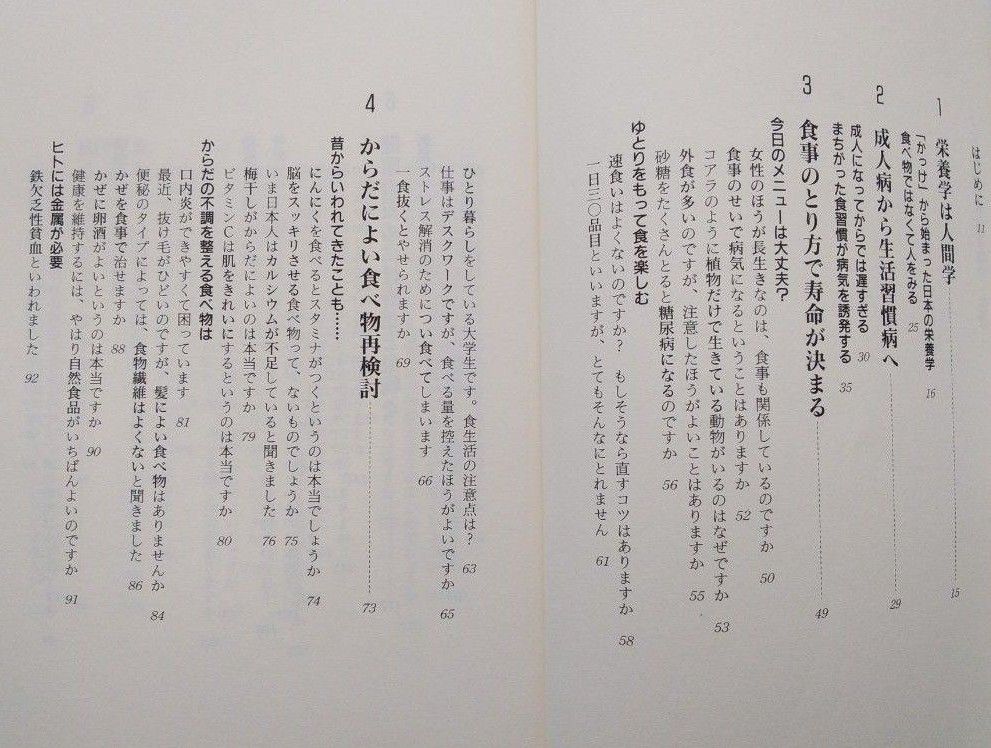 はじめに 11
1 栄養学は人間学 15
「かっけ」から始まった日本の栄養学 16
食べ物ではなくて人をみる 25
2 成人病から生活習慣病へ 29
成人になってからでは遅すぎる 30
まちがった食習慣が病気を誘発する 35
3 食事のとり方で寿命が決まる 49
今日のメニューは大丈夫?
女性のほうが長生きなのは、食事も関係しているのですか 50
食事のせいで病気になるということはありますか 52
コアラのように植物だけで生きている動物がいるのはなぜですか 53
外食が多いのですが、注意したほうがよいことはありますか 55
砂糖をたくさんとると糖尿病になるのですか 56
ゆとりをもって食を楽しむ
速食いはよくないのですか? もしそうなら直すコツはありますか 58
一日三〇品目といいますが、とてもそんなにとれません 61
ひとり暮らしをしている大学生です。食生活の注意点は? 63
仕事はデスクワークですが、食べる量を控えたほうがよいですか 65
ストレス解消のためについ食べてしまいます 66
一食抜くとやせられますか 69
4 からだによい食べ物再検討 73
昔からいわれてきたことも……
にんにくを食べるとスタミナがつくというのは本当でしょうか 74
脳をスッキリさせる食べ物って、ないものでしょうか 75
いま日本人はカルシウムが不足していると聞きました 76
梅干しがからだによいのは本当ですか 79
ビタミンCは肌をきれいにするというのは本当ですか 80
からだの不調を整える食べ物は
口内炎ができやすくて困っています 81
最近、抜け毛がひどいのですが、髪によい食べ物はありませんか 84
便秘のタイプによっては、食物繊維はよくないと聞きました 86
かぜを食事で治せますか 88
かぜに卵酒がよいというのは本当ですか 90
健康を維持するには、やはり自然食品がいちばんよいのですか 91
ヒトには金属が必要
鉄欠乏性貧血といわれました 92